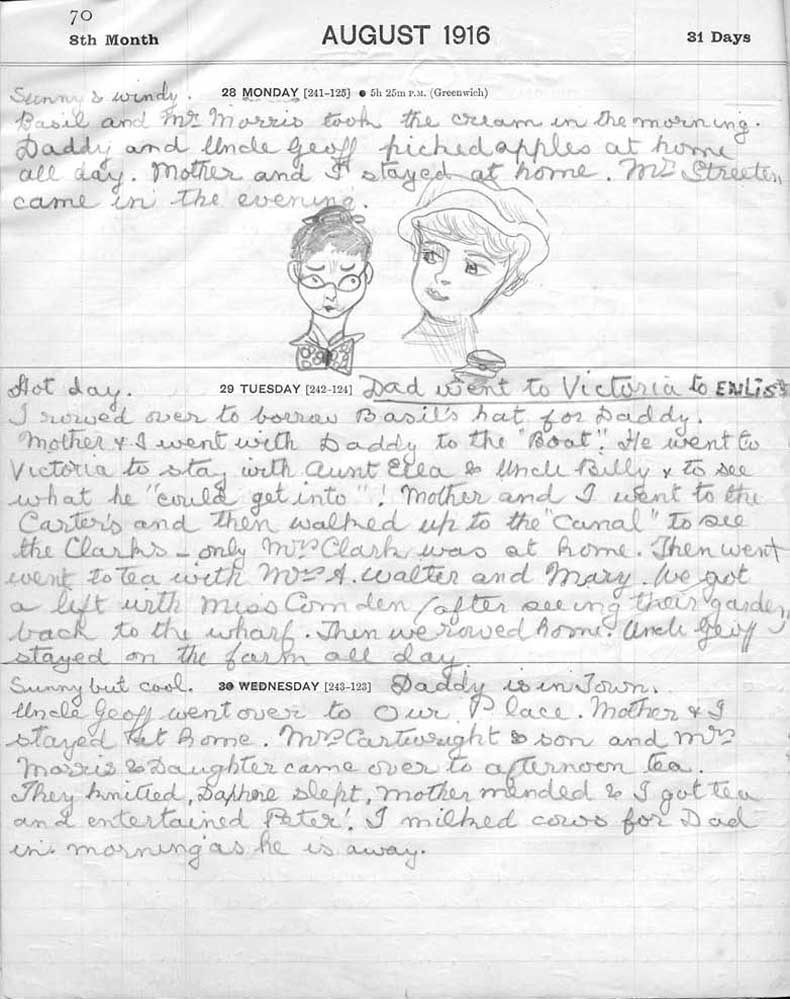 70
8th Month
AUGUST 1916
31 Days
Sunny & windy. 28 MONDAY [241-125] ● 5h 25m P.M. (Greenwich)
Basil and Mr Morris took the cream in the morning.
Daddy and Uncle Geoff picked apples at home
all day. Mother and I stayed at home. Mr Streeten
came in the evening.
Hot day. 29 TUESDAY [242-124] Dad went to Victoria to ENLIST
I rowed over to borrow Basil's hat for Daddy.
Mother & I went with Daddy to the "Boat". He went to
Victoria to stay with Aunt Ella & Uncle Billy & to see
what he "could get into"! Mother and I went to the
Carter's and then walked up to the "Canal" to see
the Clarks - only Mrs Clark was at home. Then went
went to tea with Mrs A. Walter and Mary. We got
a lift with Miss Comden (after seeing their garden)
back to the wharf. Then we rowed home. Uncle Geoff
stayed on the farm all day.
Sunny but cool. 30 WEDNESDAY [243-123] Daddy is in Town.
Uncle Geoff went over to Our Place. Mother & I
stayed at home. Mrs Cartwright & son and Mrs
Morris & Daughter came over to afternoon tea.
They knitted, Daphne slept, Mother mended & I got tea
and entertained 'Peter'. I milked cows for Dad
in morning as he is away.